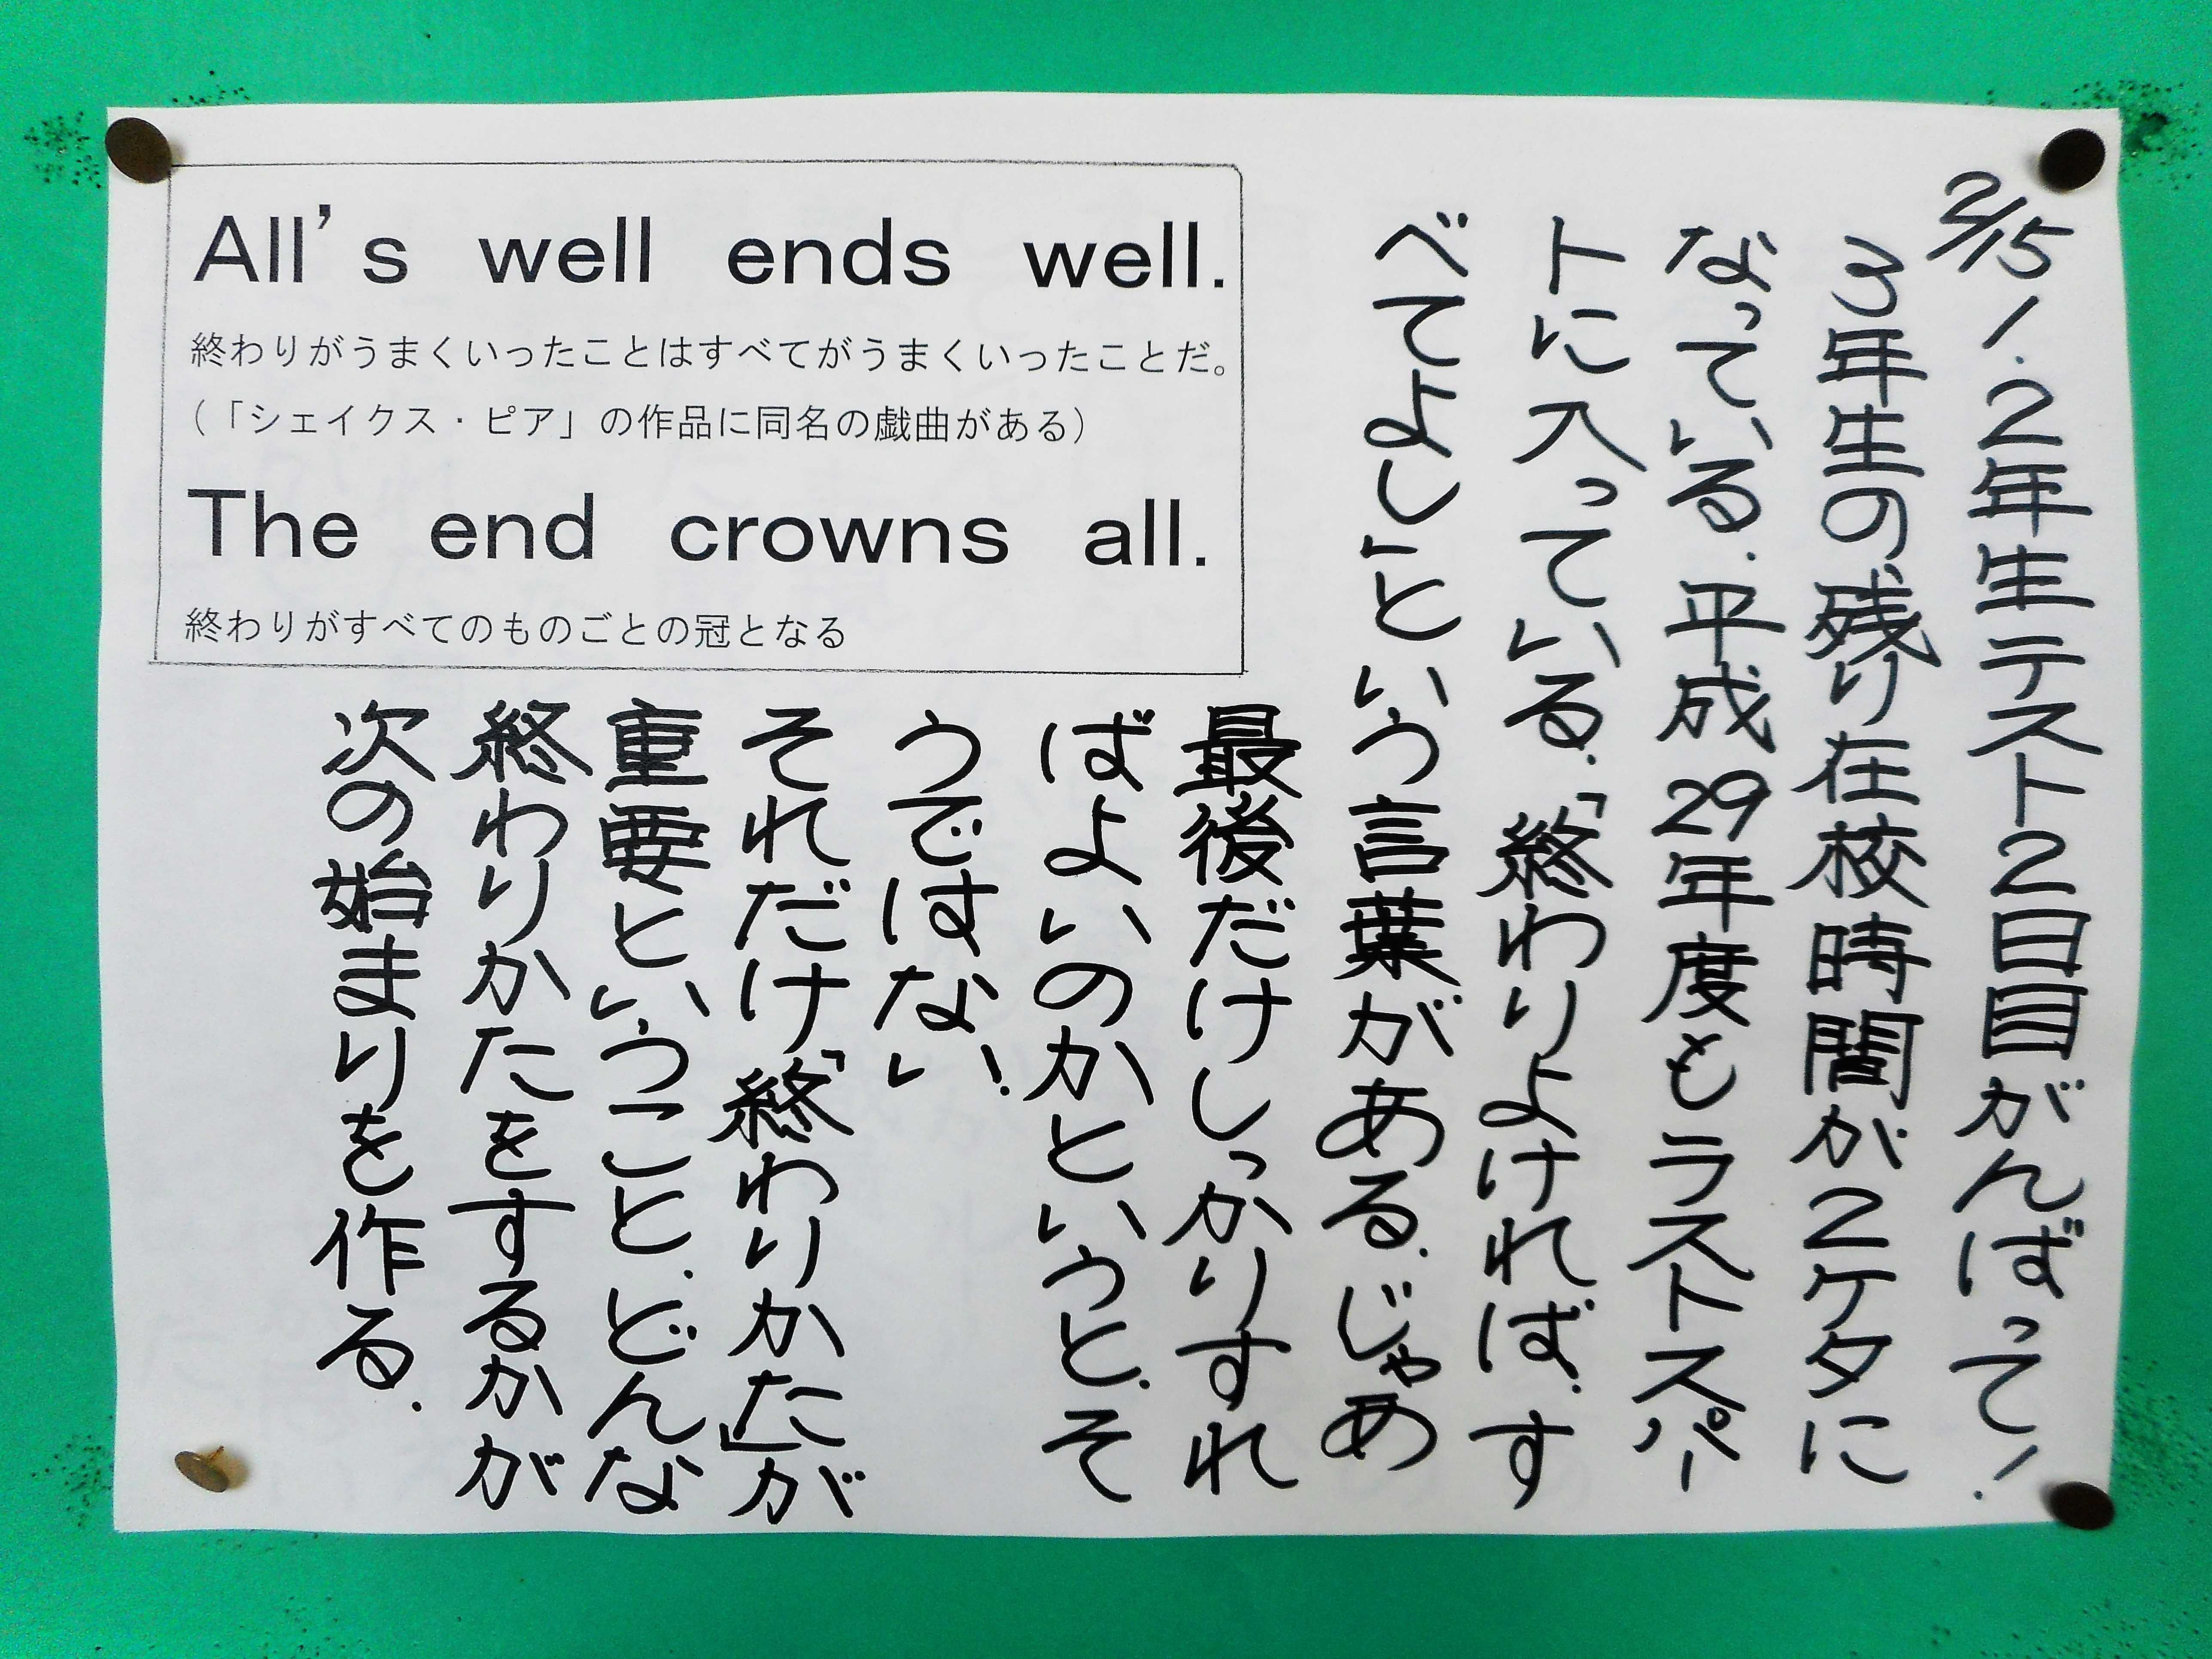 2/15 1.2年生テスト2日目がんばって!
3年生の残り在校時間が2ケタに
なっている.平成29年度もラストスパー
トに入っている.「終わりよければ.す
べてよし」という言葉がある.じゃあ
最後だけしっかりすれ
ばよいのかというと.そ
うではない!
それだけ「終わりかた」が
重要ということ.どんな
終わりかたをするかが
次の始まりを作る.
All's well ends well.
終わりがうまくいったことはすべてがうまくいったことだ。
(「シェイクス・ピア」の作品に同名の戯曲がある)
The end crowns all.
終わりがすべてのものごとの冠となる